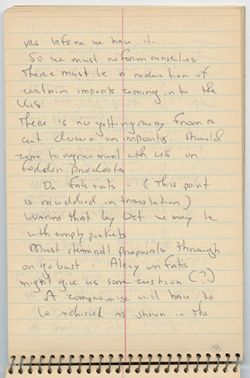 us before we have it.
So we must reform ourselves
There must be a reduction of
certain imports coming into the
UK.
There is no getting away from a
cut down on imports. Should
come to agreement with US on
fodder products
On fats - (This point
is muddled in translation)
Warns that by Oct we may be
with empty pockets
Must steamroll proposals through
or go bust. A levy on fats
might give us some cushion (?)
A compromise will have to
be achieved as shown in the